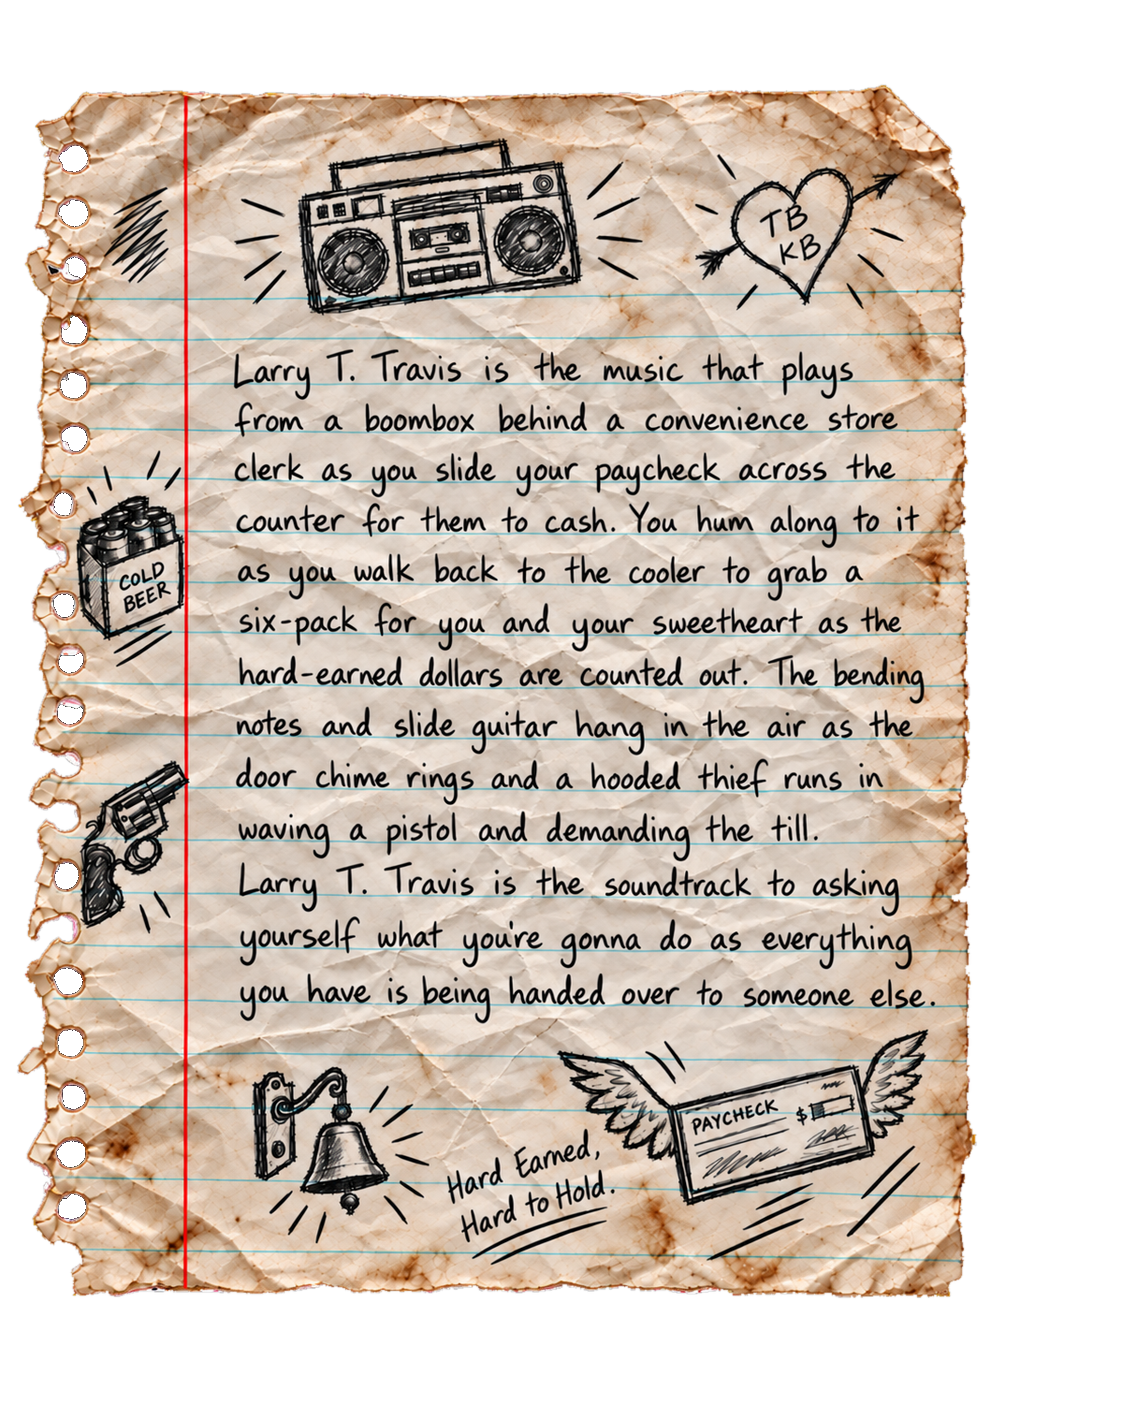 TB
KB
Larry T. Travis is the music that plays
from a boombox behind a convenience store
clerk as you slide your paycheck across the
counter for them to cash. You hum along to it
as you walk back to the cooler to grab a
six-pack for you and your sweetheart as the
hard-earned dollars are counted out. The bending
notes and slide guitar hang in the air as the
door chime rings and a hooded thief runs in
waving a pistol and demanding the till.
Larry T. Travis is the soundtrack to asking
yourself what you're gonna do as everything
you have is being handed over to someone else.
COLD
BEER
PAYCHECK $
Hard Earned,
Hard to Hold.